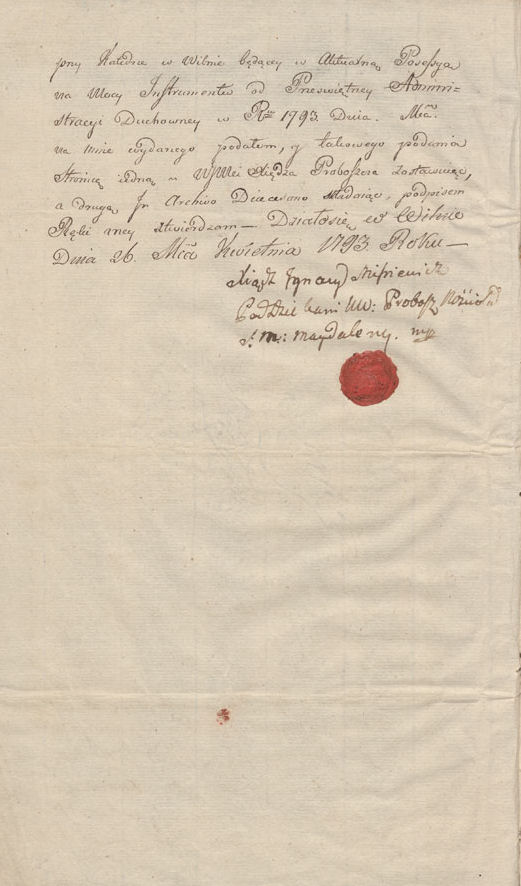 przy Katedrze w Wilnie będącey w Aktualną Possesyą
na Mocy Instrumentu od Przeświętney Admini=
stracyi Duchowney w Rku 1793. Dnia. Mca.
na mnie wydanego podałem, y takowego podania
stronicę iedną u WJMci Xiędza Proboszcza zostawuiąc,
a drugą in Archivo Diecesano składaiąc, podpisem
Ręki mey stwierdzam — Działo się w Wilnie
Dnia 26. Mca Kwietnia 1793 Roku —
Xiądz Ignacy
Poddziekani Wil: Probosz
S. M: Magdaleny. mp